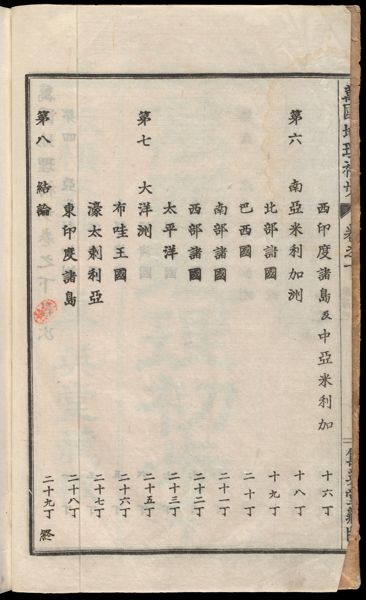 西印度諸島及中亞米利加 十六丁
第六 南亞米利加洲 十八丁
北部諸國 十九丁
巴西國 二十丁
南部諸國 二十一丁
西部諸國 二十二丁
太平洋 二十三丁
第七 大洋洲 二十五丁
布哇王國 二十六丁
濠太剌利亞 二十七丁
東印度諸島 二十八丁
第八 結論 二十九丁 終